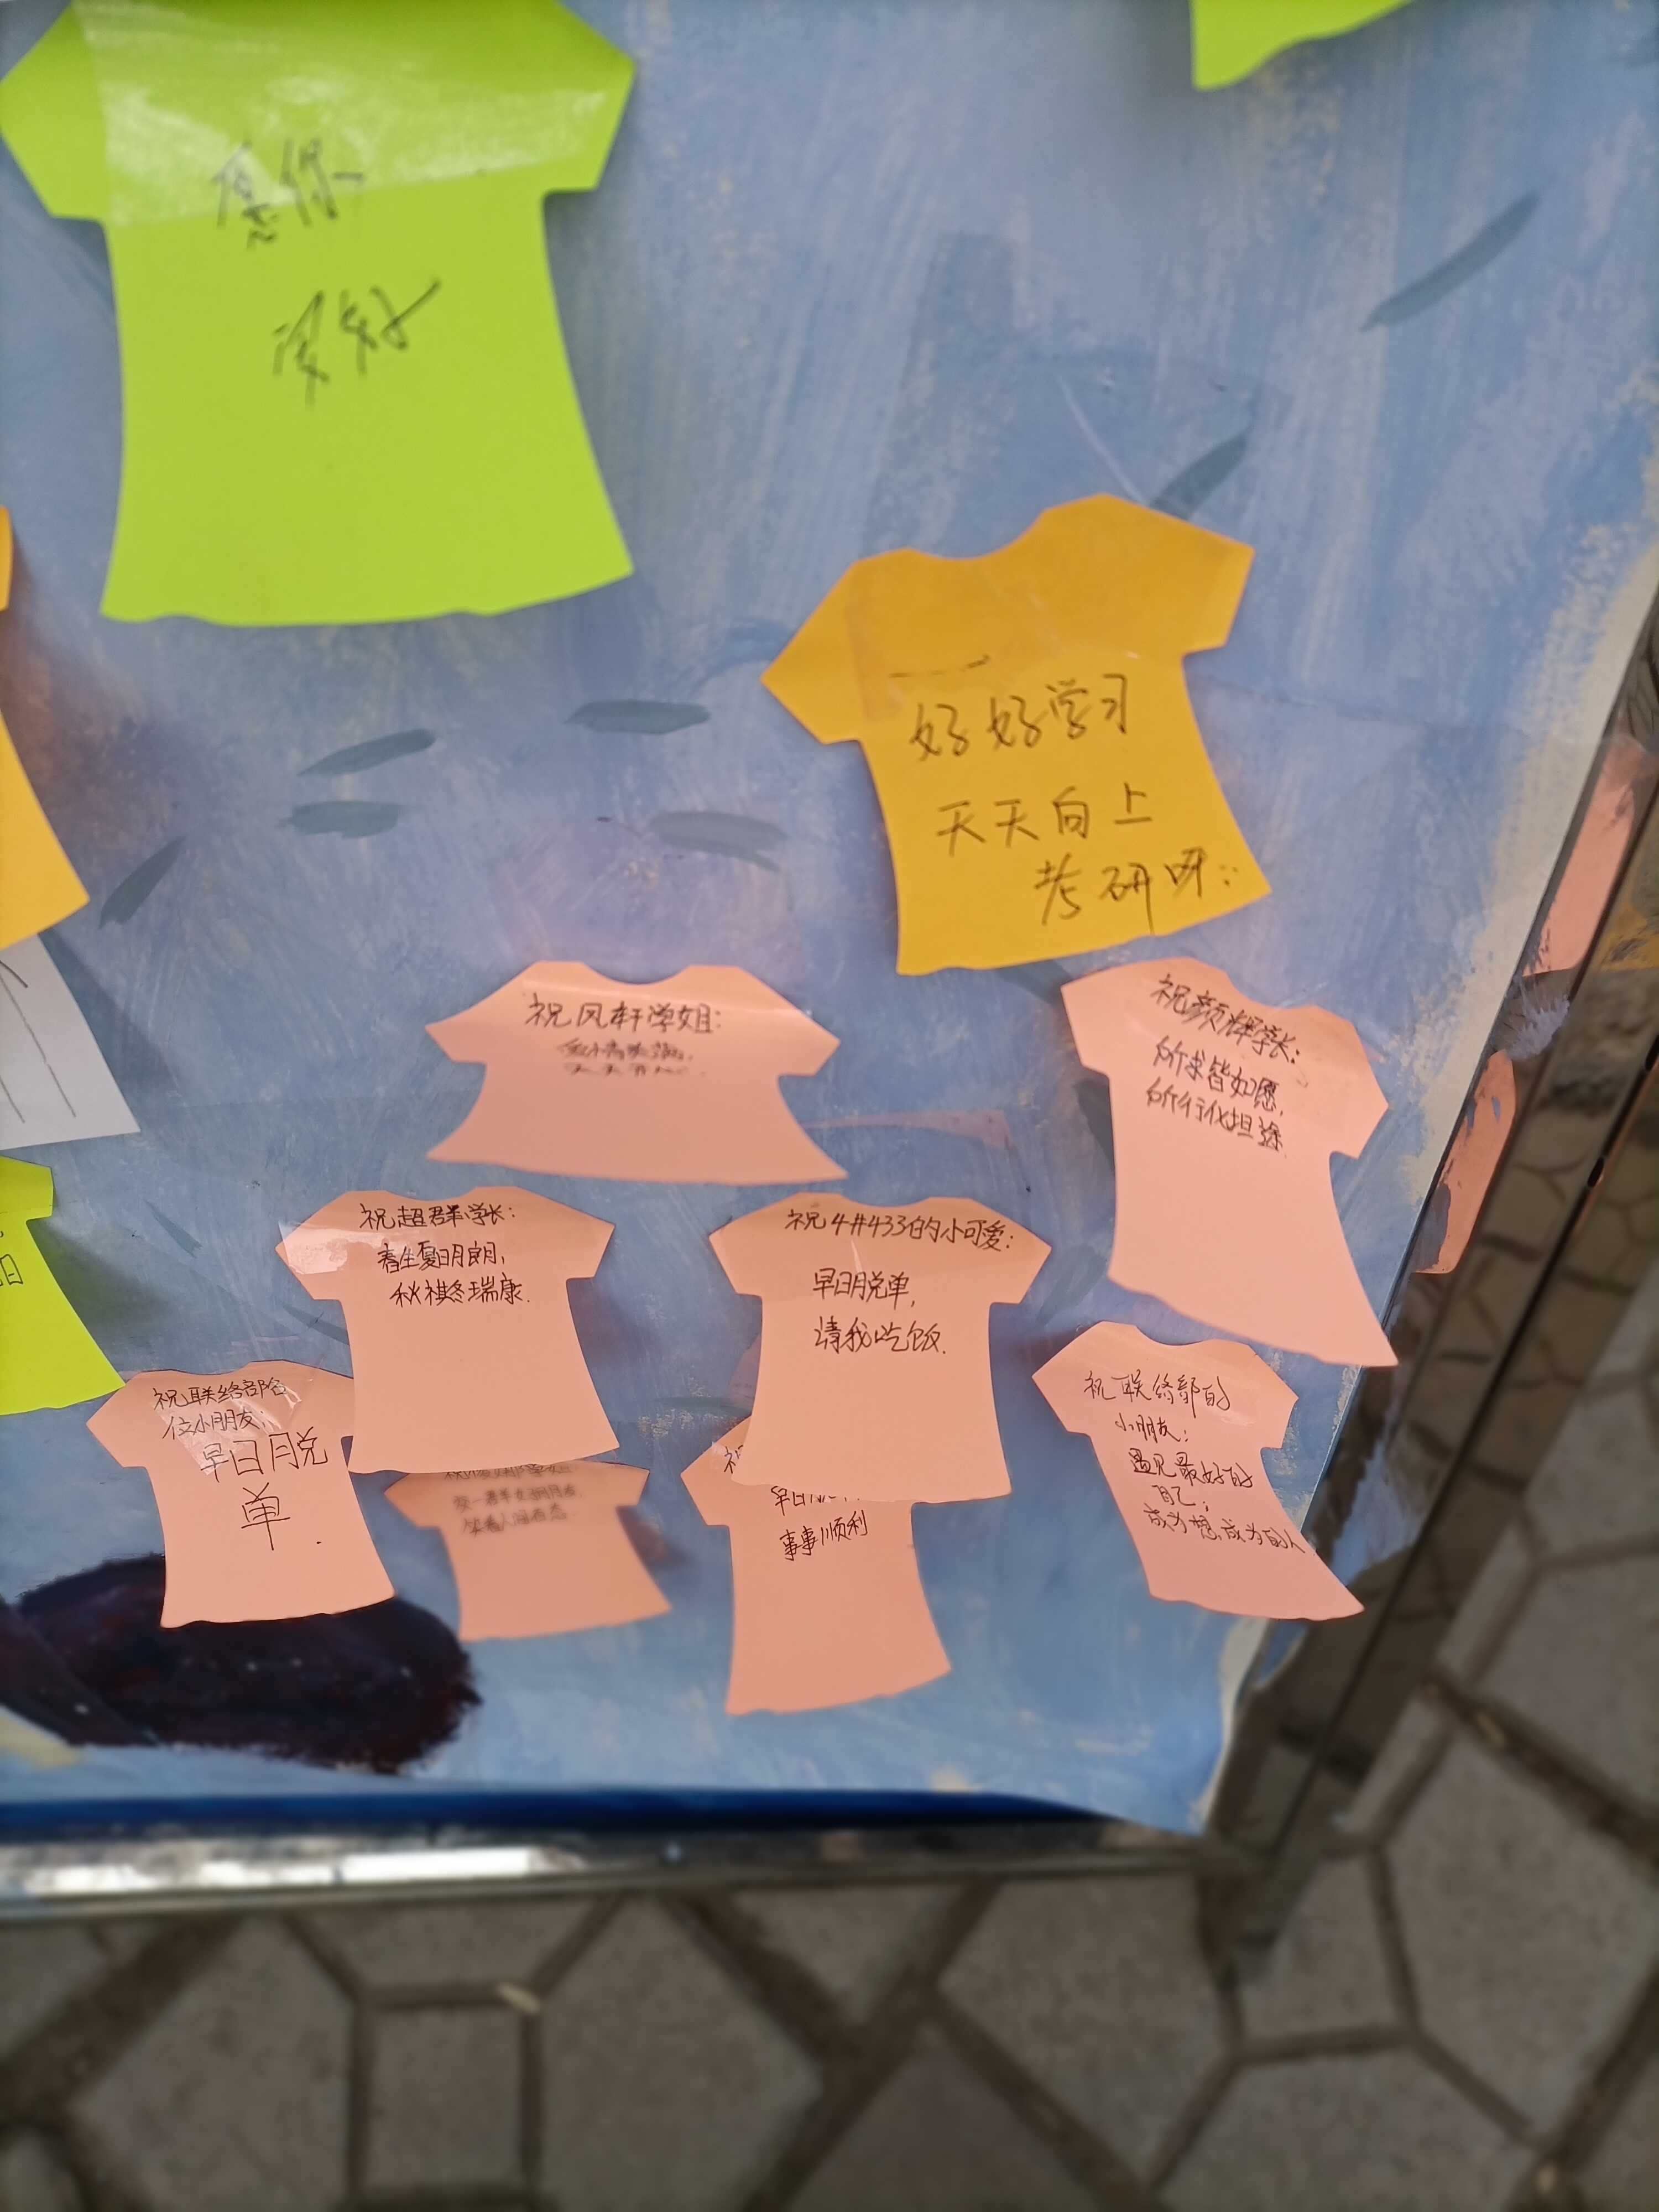 愿你
安好
好好学习
天天向上
考研呀
祝凤轩学姐:
祝颜辉学长:
所求皆如愿,
所行化坦途
祝超群学长:
春生夏明朗,
秋祺冬瑞康.
祝4#433的小可爱:
早日脱单,
请我吃饭.
祝联络部各
位小朋友:
早日脱
单.
早日
事事顺利
祝联络部的
小朋友:
遇见最好的
自己;
成为想成为的人